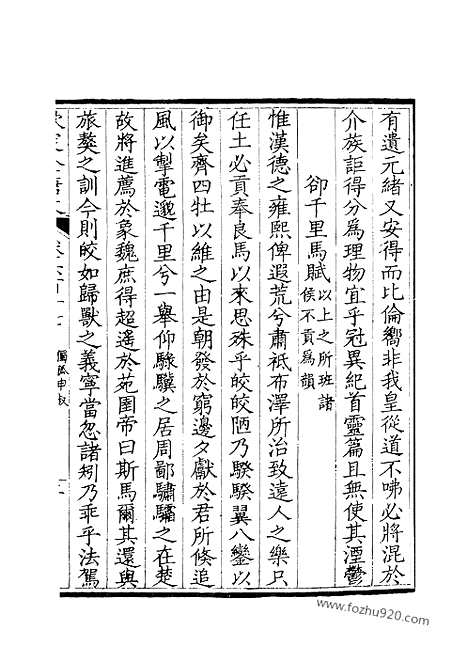 有遺元緒又安得而比倫嚮非我皇從道不咈必將混於
介族詎得分爲理物宜乎冠異紀首靈篇且無使其湮鬱
卻千里馬賦以上之所班諸侯不貢爲韻
惟漢德之雍熙俾遐荒兮肅祗布澤所治致遠人之樂只
任土必貢奉良馬以來思殊乎皎皎陋乃騤騤翼八鑾以
御矣齊四牡以維之由是朝發於窮邊夕獻於君所倏追
風以掣電邈千里兮一舉仰騄驥之居周鄙驌驦之在楚
故將進薦於象魏庶得超遥於苑囿帝曰斯馬爾其還與
旅獒之訓今則皎如歸獸之義寧當忽諸矧乃乖乎法駕
欽定全唐文 卷六百十七 獨孤申叔
www.fozhu920.com